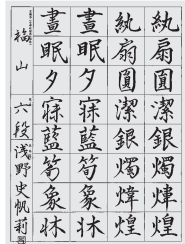 紈扇圓潔銀燭煒煌
紈扇圓潔銀燭煒煌
晝眠夕寐藍筍象牀
晝眠夕寐藍筍象牀
山 六段 浅野史帆莉